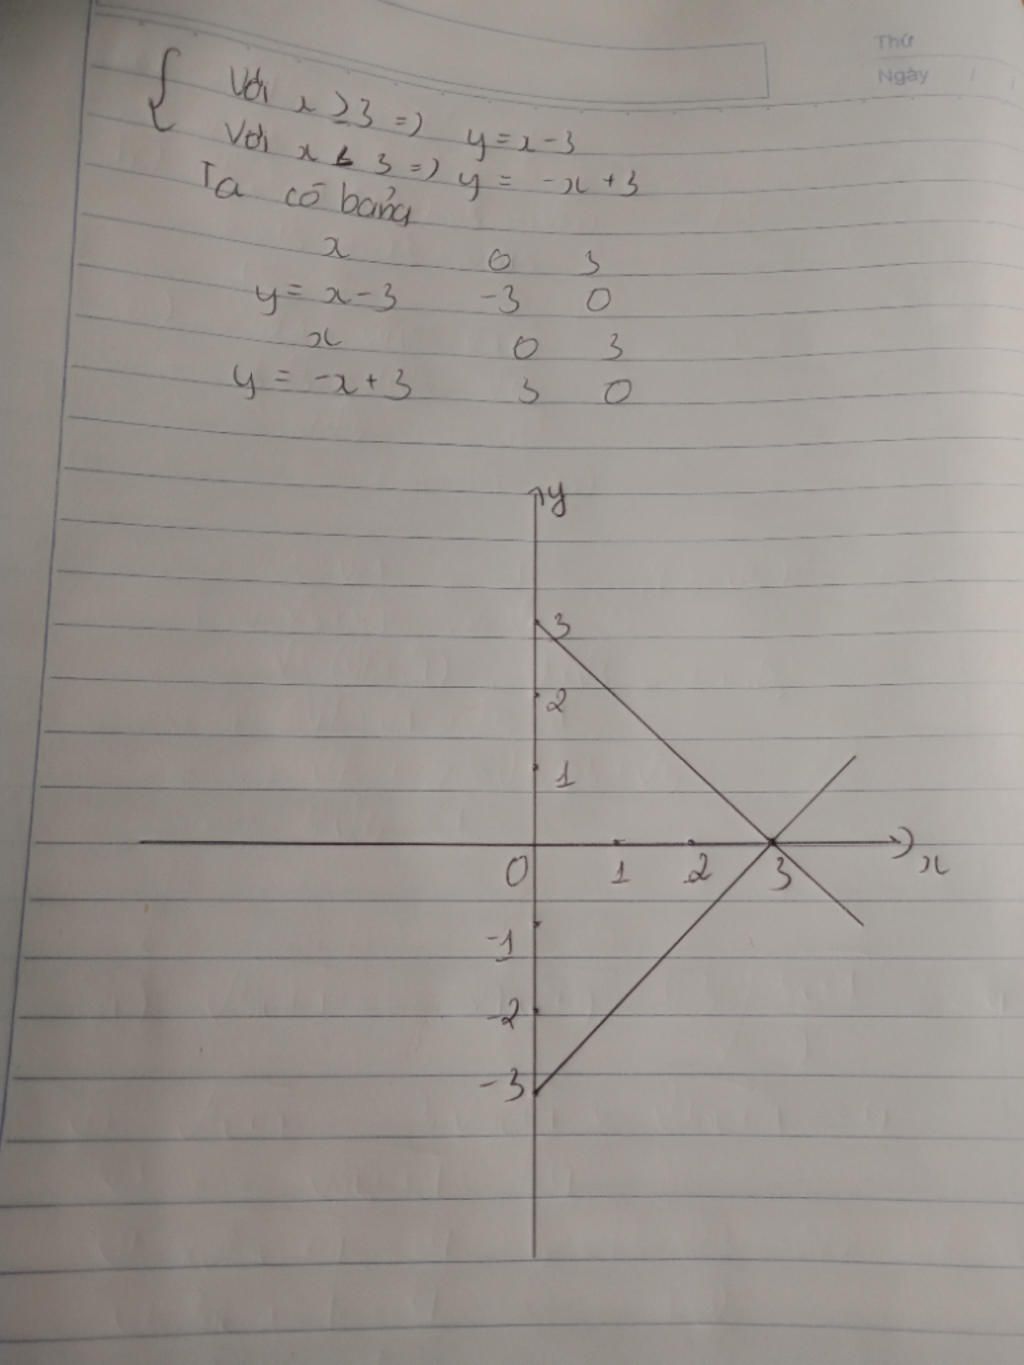 Thứ
Ngày / /
{ Với x ≥ 3 => y = x - 3
Với x < 3 => y = -x + 3
Ta có bảng
x 0 3
y = x - 3 -3 0
x 0 3
y = -x + 3 3 0
y
3
2
1
0 1 2 3 x
-1
-2
-3